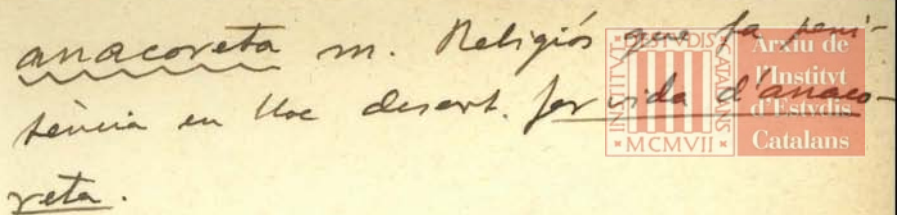 anacoreta m. Religiós que fa peni-
tència en lloc desert. fer vida d'anaco-
reta.
INSTITVT D'ESTVDIS CATALANS
MCMVII
Arxiu de
l'Institvt
d'Estvdis
Catalans